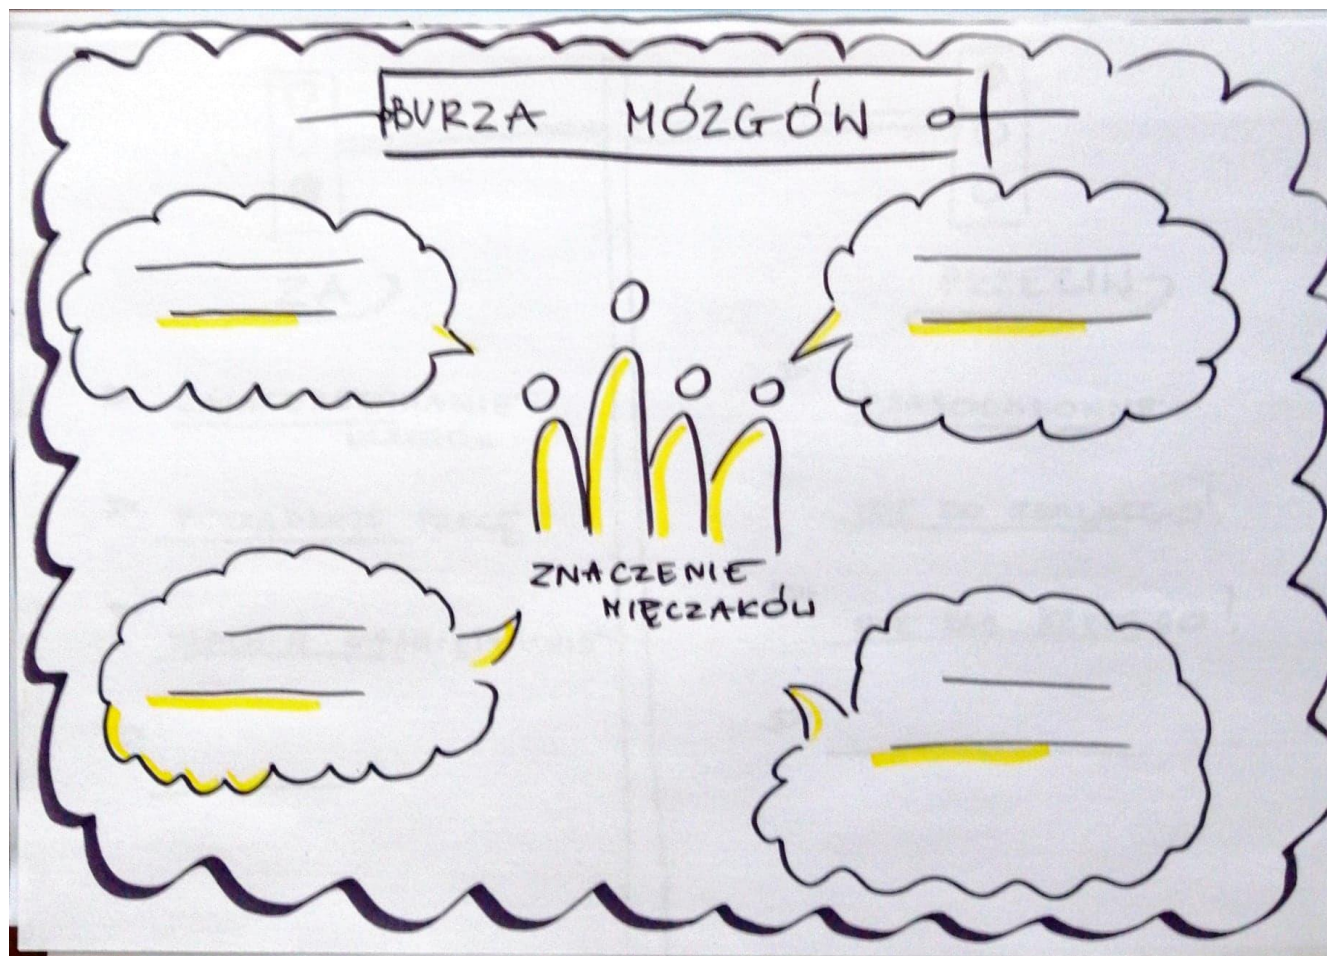 BURZA MÓZGÓW
ZNACZENIE
MIĘCZAKÓW